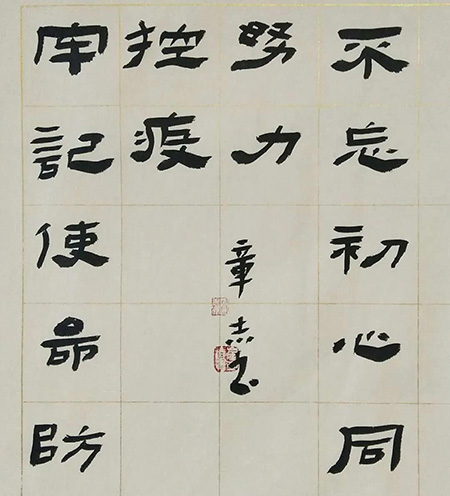 不忘初心同
努力
牢記使命防
控疫
章志书